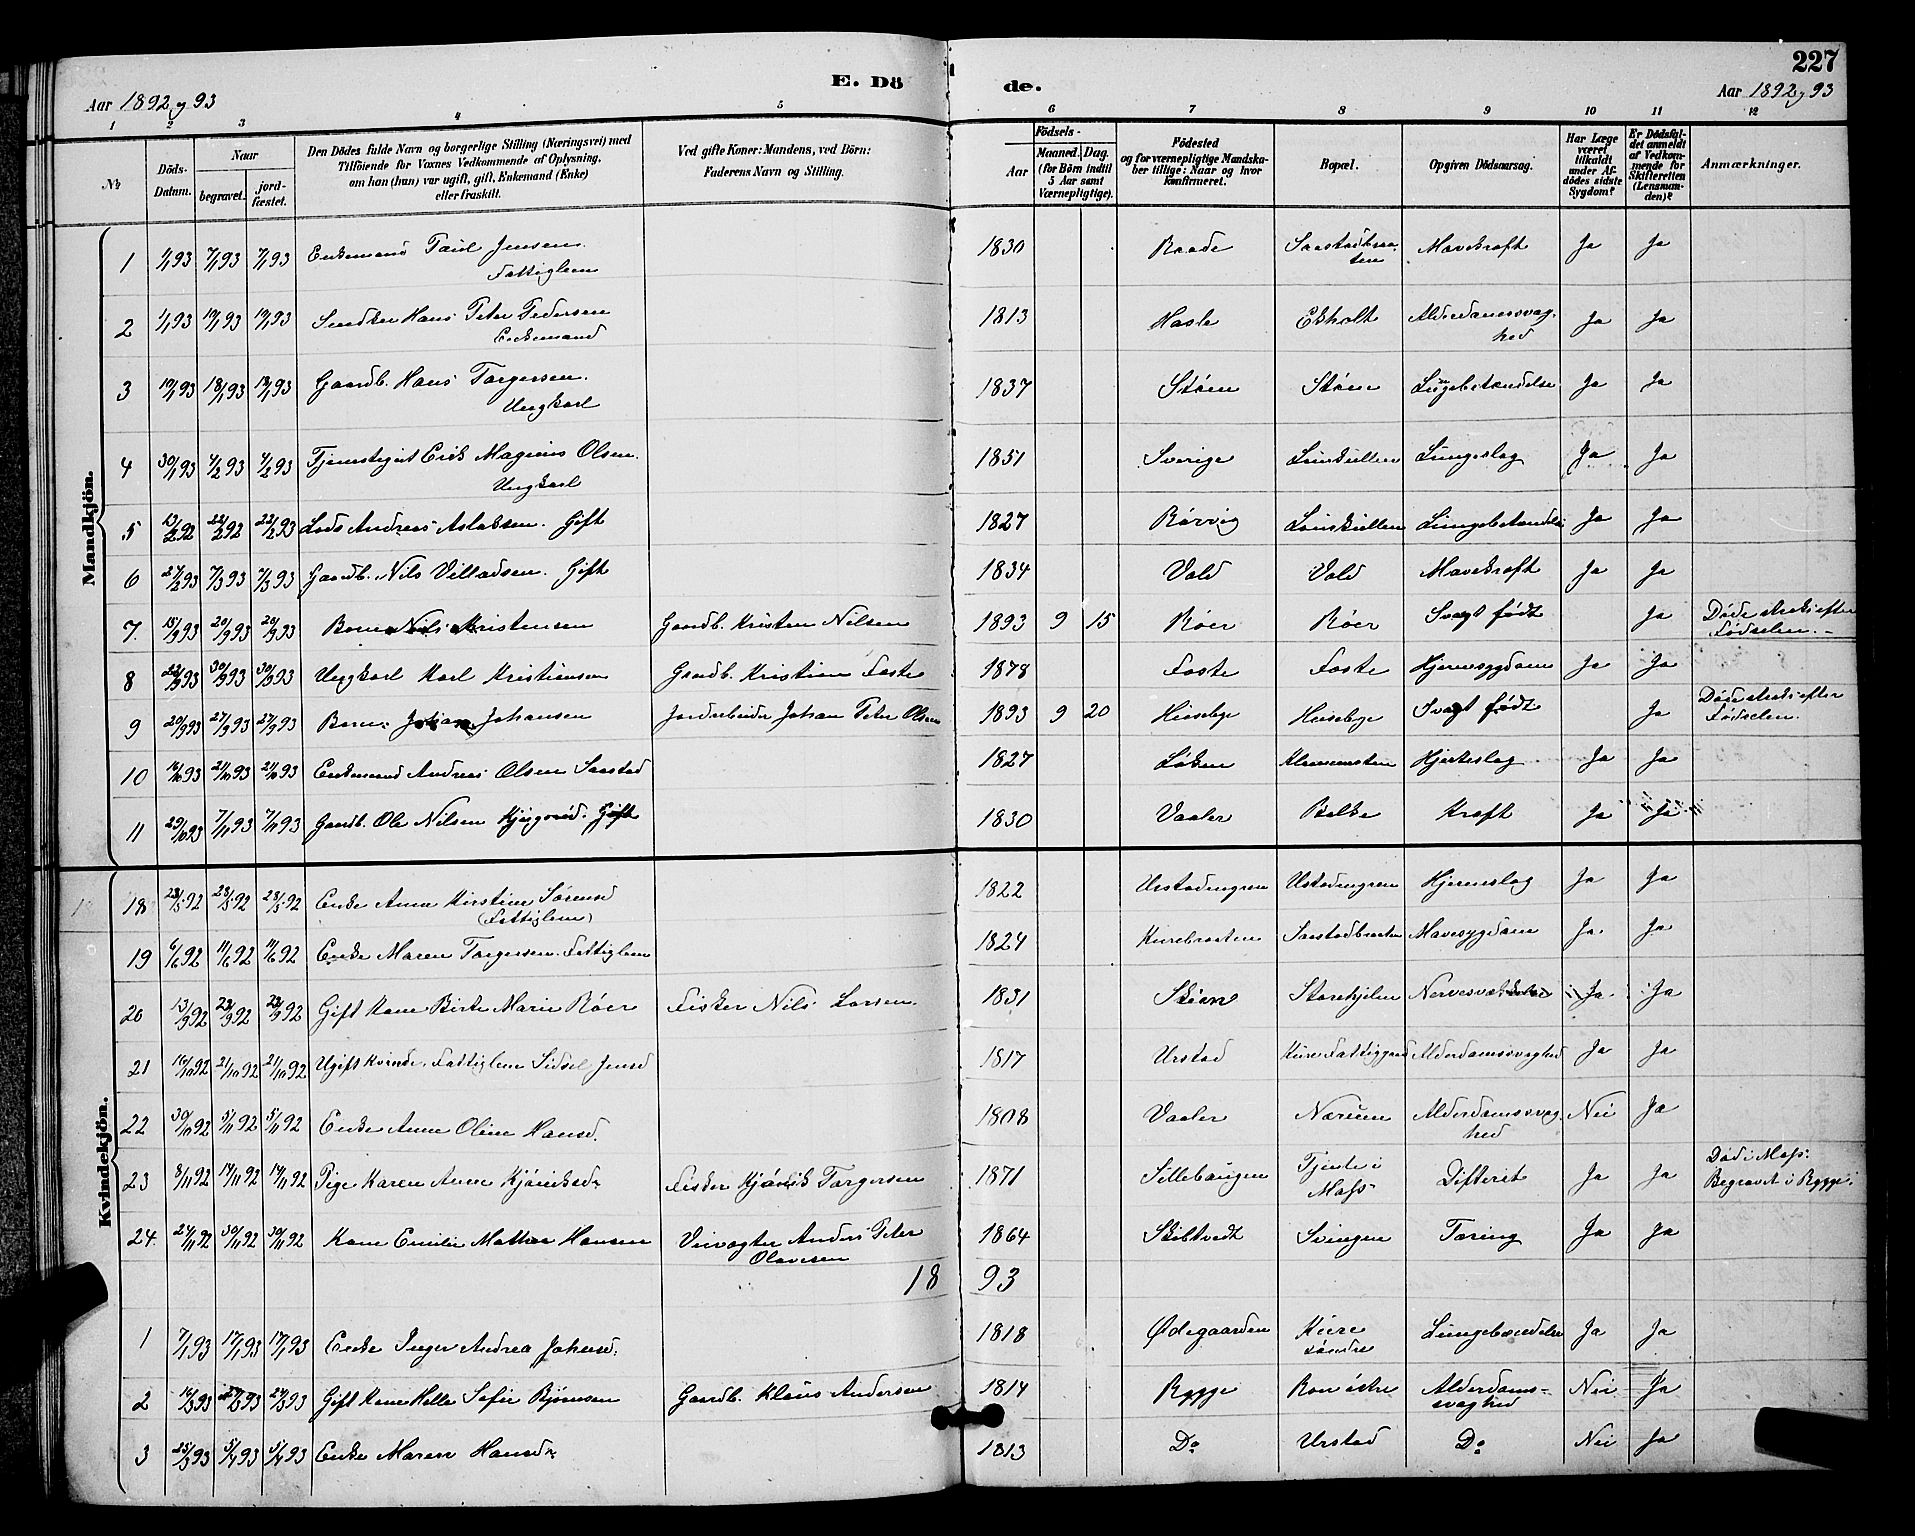 227
E. Dö de.
Aar 1892 og 93
Aar 1892 og 93
1 2 3 4 5 6 7 8 9 10 11 12
№
Döds-Datum.
Naar
begravet.
jord-fæstet.
Den Dödes fulde Navn og borgerlige Stilling (Næringsvei) med
Tilföiende for Voxnes Vedkommende af Oplysning,
om han (hun) var ugift, gift, Enkemand (Enke)
eller fraskilt.
Ved gifte Koner: Mandens, ved Börn:
Faderens Navn og Stilling.
Födsels-
Aar
Maaned. Dag.
(for Börn indtil
5 Aar samt
Værnepligtige).
Födested
og for værnepligtige Mandska-
ber tillige: Naar og hvor
konfirmeret.
Bopæl.
Opgiven Dödsaarsag.
Har Læge
været
tilkaldt
under Af-
dödes sidste
Sygdom?
Er Dödsfal-
det anmeldt
af Vedkom-
mende for
Skifteretten
(Lensman-
den)?
Anmærkninger.
Mandkjön.
1 1/1 93 7/1 93 7/1 93 Enkemand Paul Jensen. Fattiglem 1830 Raade Saastadbraa-ten Mavekræft Ja Ja
2 1/1 93 10/1 93 10/1 93 Snedker Hans Peter Pedersen Enkemand 1813 Hasle Ekholt Alderdomssvag-hed Ja Ja
3 10/1 93 18/1 93 18/1 93 Gaardb. Hans Torgersen. Ungkarl 1837 Støm Støm Lungebetændelse Ja Ja
4 30/1 93 4/2 93 4/2 93 Tjenestegut Erik Magnus Olsen. Ungkarl 1851 Sverige Larkullen Lungeslag Ja Ja
5 13/2 92 22/2 92 22/2 93 Lods Andreas Aslaksen. Gift 1827 Rørvig Larkullen Lungebetændelse Ja Ja
6 27/2 93 7/3 93 7/3 93 Gaardb. Nils Villadsen. Gift 1834 Vold Vold Mavekræft Ja Ja
7. 15/9 93 20/9 93 20/9 93 Barn Nils Kristensen Gaardb. Kristen Nilsen 1893 9 15 Røer Røer Svagt født Ja Døde straks efter Fødselen.
8 93 30/ 93 30/ 93 Ungkarl Karl Kristiansen Gaardb. Kristian Foste 1878 Foste Foste Hjernesygdom Ja Ja
9 20/9 93 27/9 93 27/9 93 Barn Johan Johansen Jordarbeider Johan Peter Olsen 1893 9 20 Huseby Huseby Svagt født Ja Døde straks efter Fødselen.
10 16/10 93 21/10 93 21/10 93 Enkemand Andreas Olsen Saastad 1827 Løken Hjerteslag Ja Ja
11 29/10 93 7/11 93 7/11 93 Gaardb. Ole Nilsen. Gift 1830 Vaaler Kræft Ja Ja
Kvindekjön.
18 23/5 92 28/5 92 28/5 92 Enke Anne Kirstine Sørensd (Fattiglem) 1822 Urstadengen Ustadengen Hjerneslag Ja Ja
19 6/6 92 11/6 92 11/6 92 Enke Maren Torgersen. Fattiglem 1824 Kurebraaten Saastadbraaten Mavesygdom Ja. Ja
20 13/9 92 23/9 92 23/9 92 Gift Kone Birte Marie Røer Fisker Nils Larsen. 1831 Støm Storehjelen Ja. Ja
21 16/10 92 21/10 92 21/10 92 Ugift Kvinde, Fattiglem Sidsel Jensd 1817 Urstad Kure Fattiggaard Alderdomssvaghed Ja Ja
22 30/10 92 5/11 92 5/11 92 Enke Anne Oline Hansd. 1808 Vaaler Nærum Alderdomssvag-hed Nei Ja
23 8/11 92 17/11 92 17/11 92 Pige Karen Anne Kjøniksd. Fisker Kjønik Torgersen 1871 Sillebaugen Tjente i Moss Difterit Ja Ja Død i Moss. Begravet i Rygge.
24. 24/11 92 30/11 92 30/11 92 Kone Emilie Mathea Hansen Veivogter Anders Peter Olavesen 1864 Skibtvedt Svingen Tæring Ja Ja
1893
1 7/1 93 17/1 93 17/1 93 Enke Inger Andrea Johansd. 1818 Ødegaarden Kure søndre Lungebetændelse Ja Ja
2 16/3 93 24/3 93 24/3 93 Gift Kone Helle Sofie Bjørnsen Gaardb. Klaus Andersen 1814 Rygge Roer østre Alderdoms-svaghed Nei Ja
3 25/3 93 5/4 93 5/4 93 Enke Maren Hansd. 1813 Do Urstad Do Nei Ja